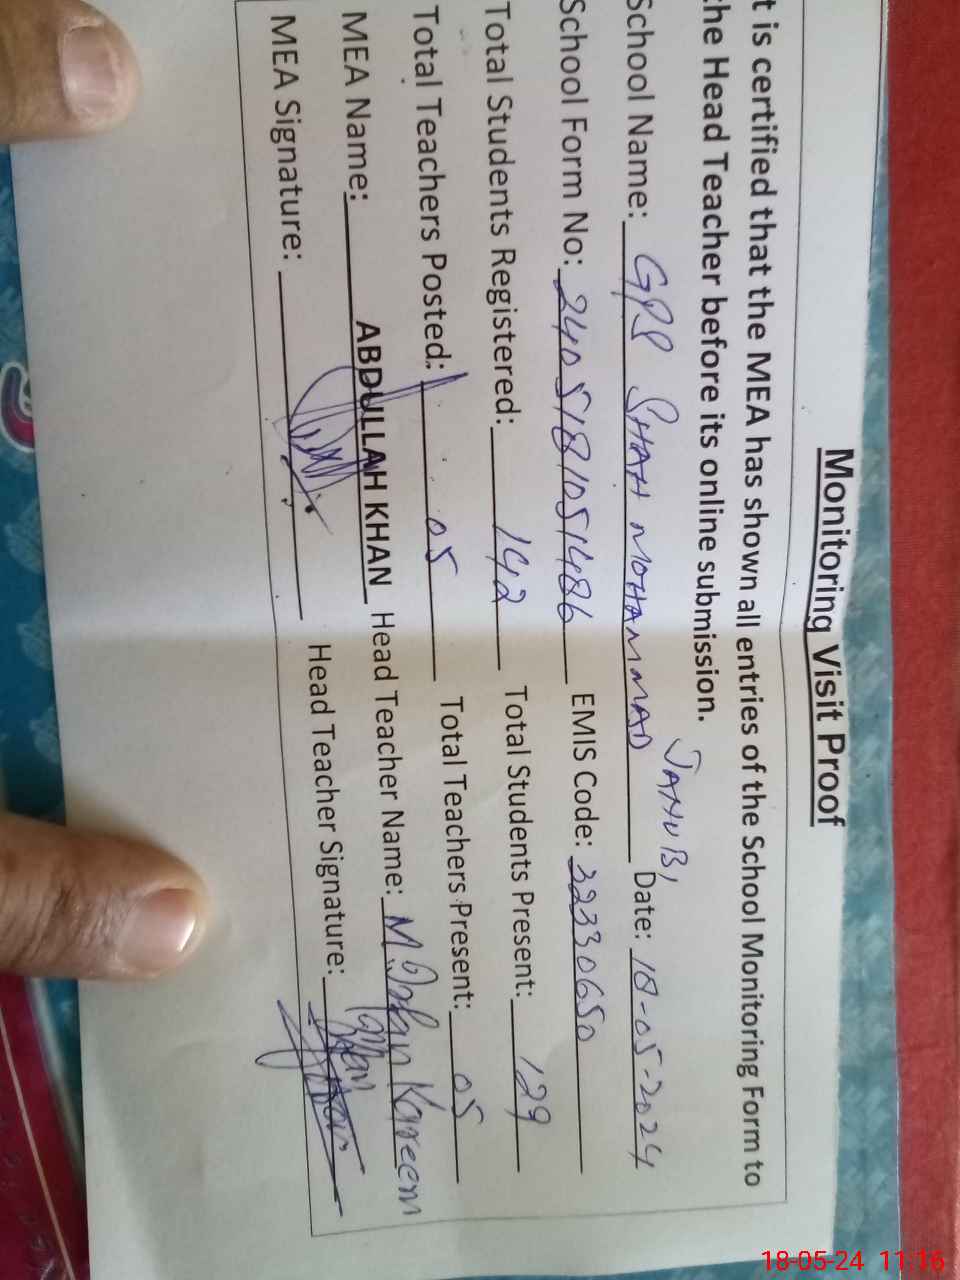 Monitoring Visit Proof
t is certified that the MEA has shown all entries of the School Monitoring Form to
the Head Teacher before its online submission.
JANUBI
School Name: GPS SHAH MOHAMMAD Date: 18-05-2024
School Form No: 2405181051486 EMIS Code: 32330650
Total Students Registered: 142 Total Students Present: 129
Total Teachers Posted: 05 Total Teachers Present: 05
MEA Name: ABDULLAH KHAN Head Teacher Name: M. Kareem
MEA Signature: Head Teacher Signature:
18-05-24 11:16